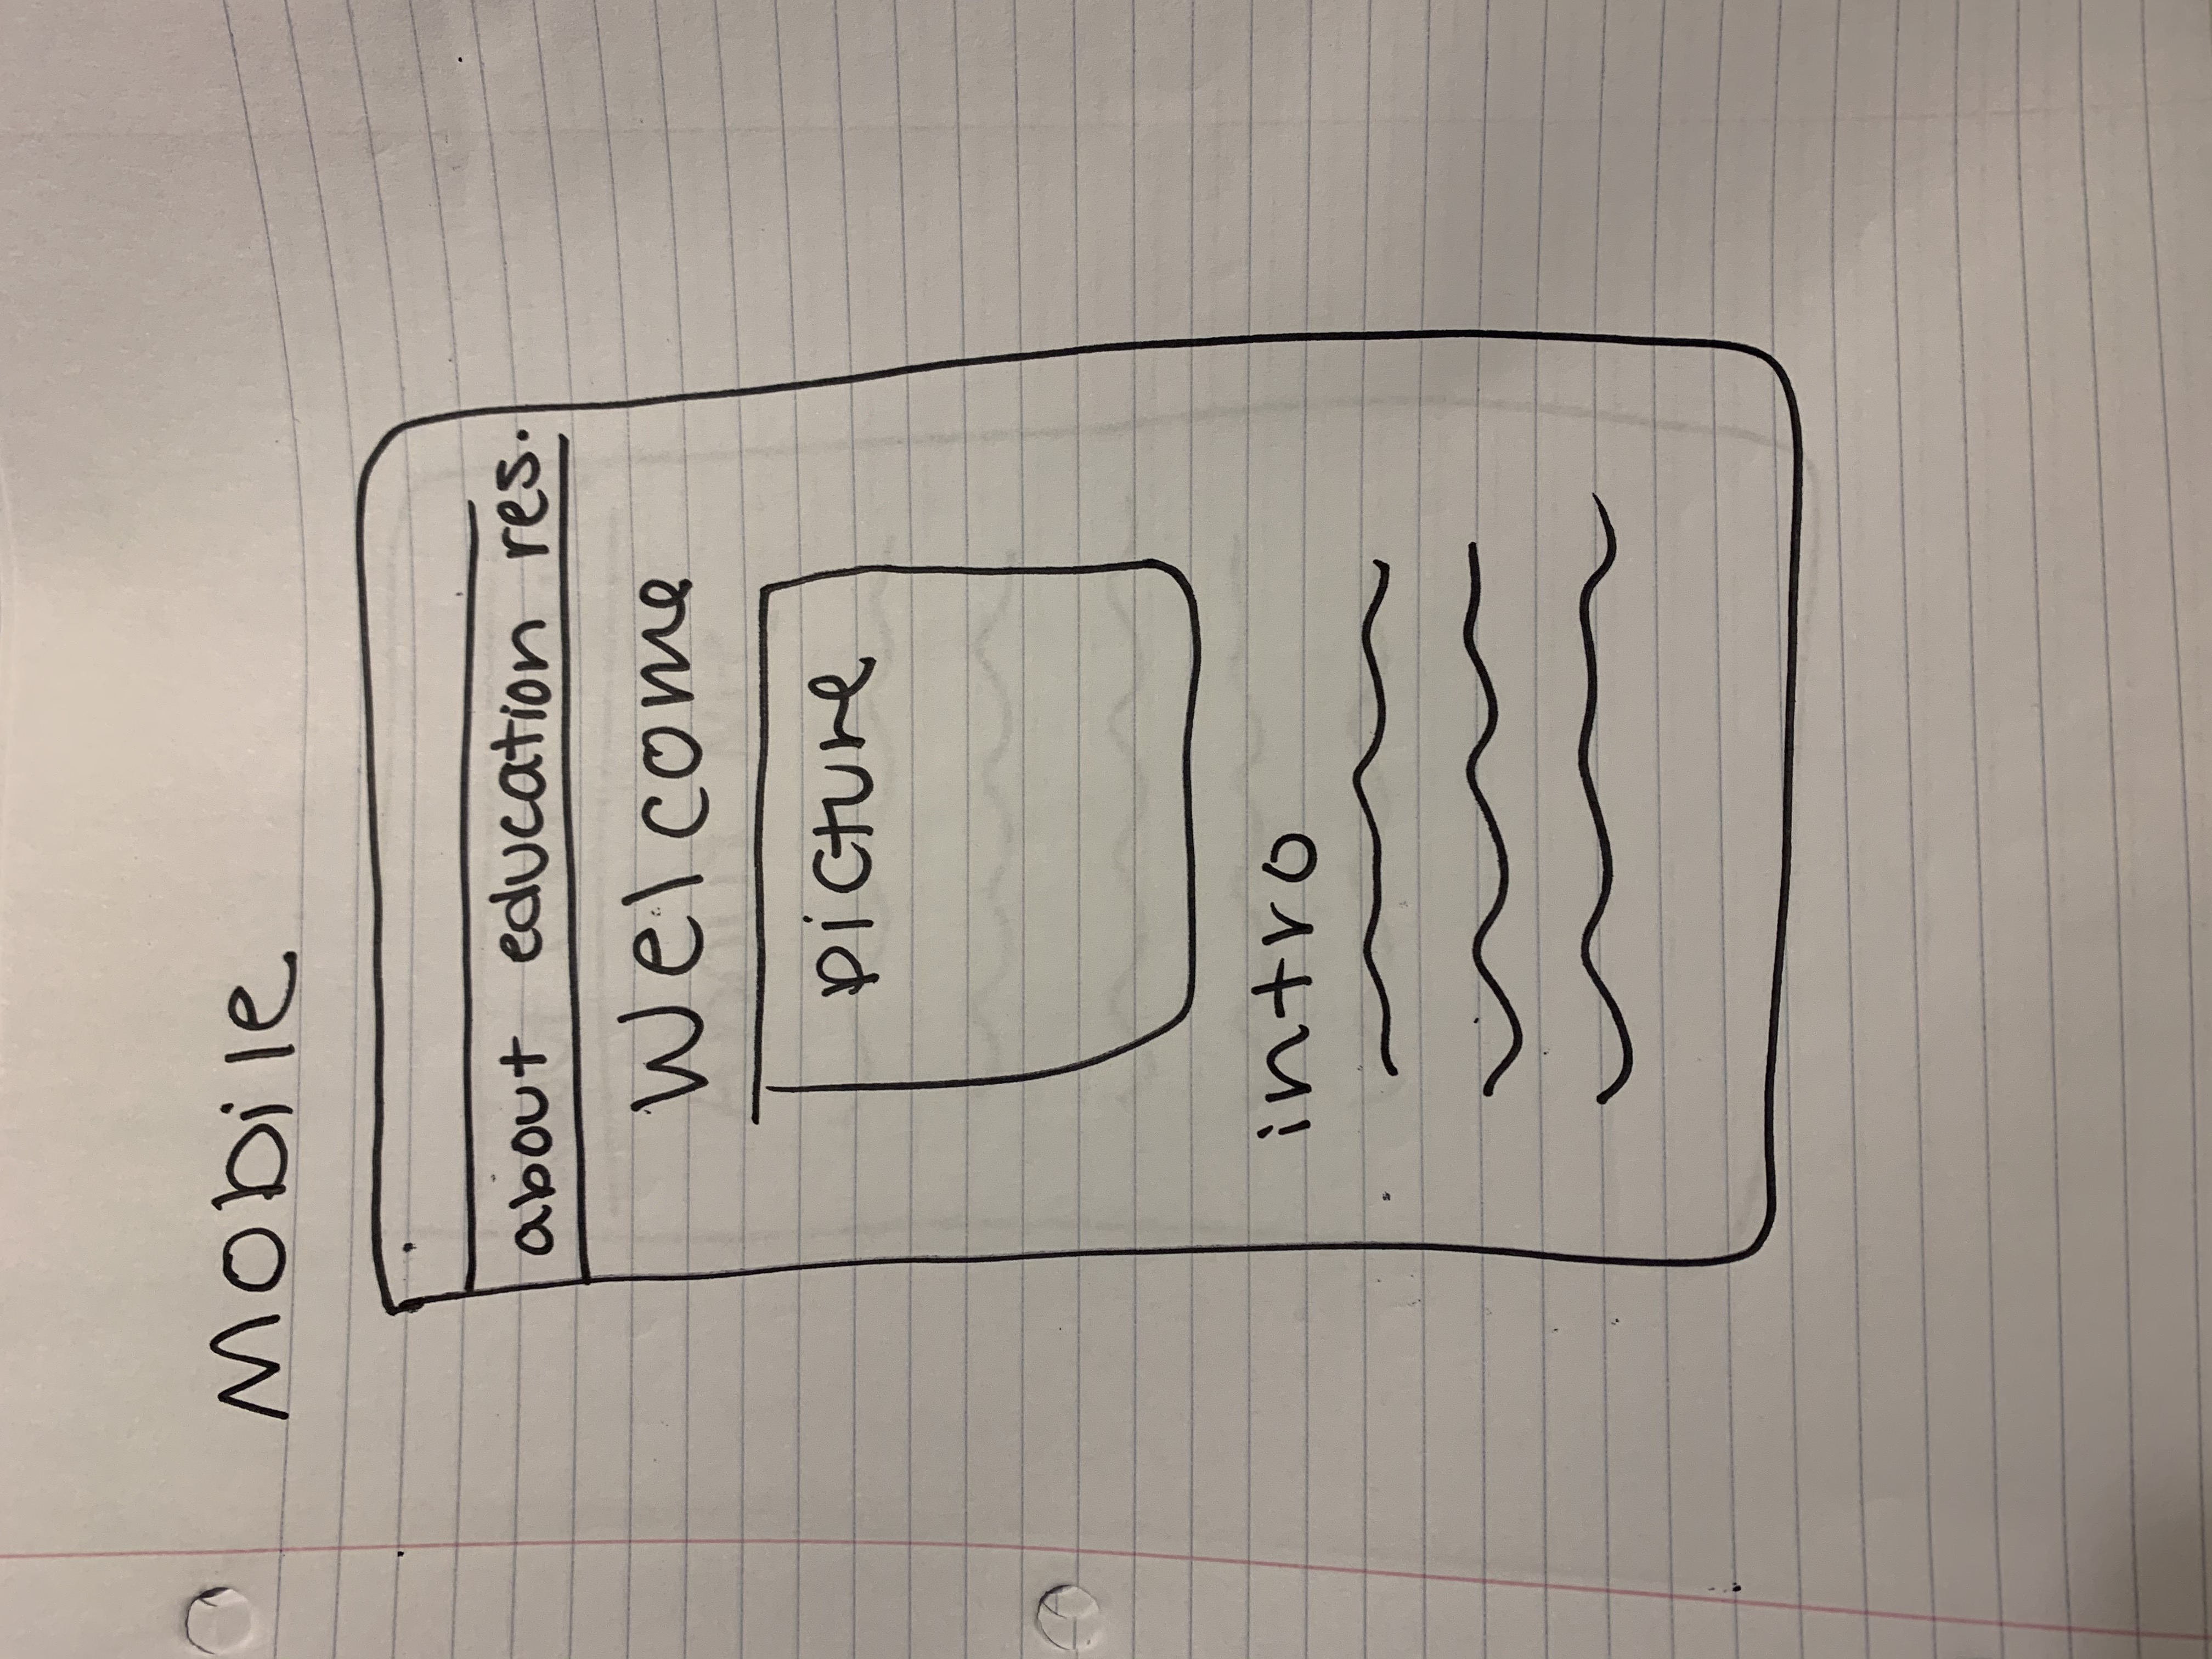 Mobile
about education res.
Welcome
picture
intro